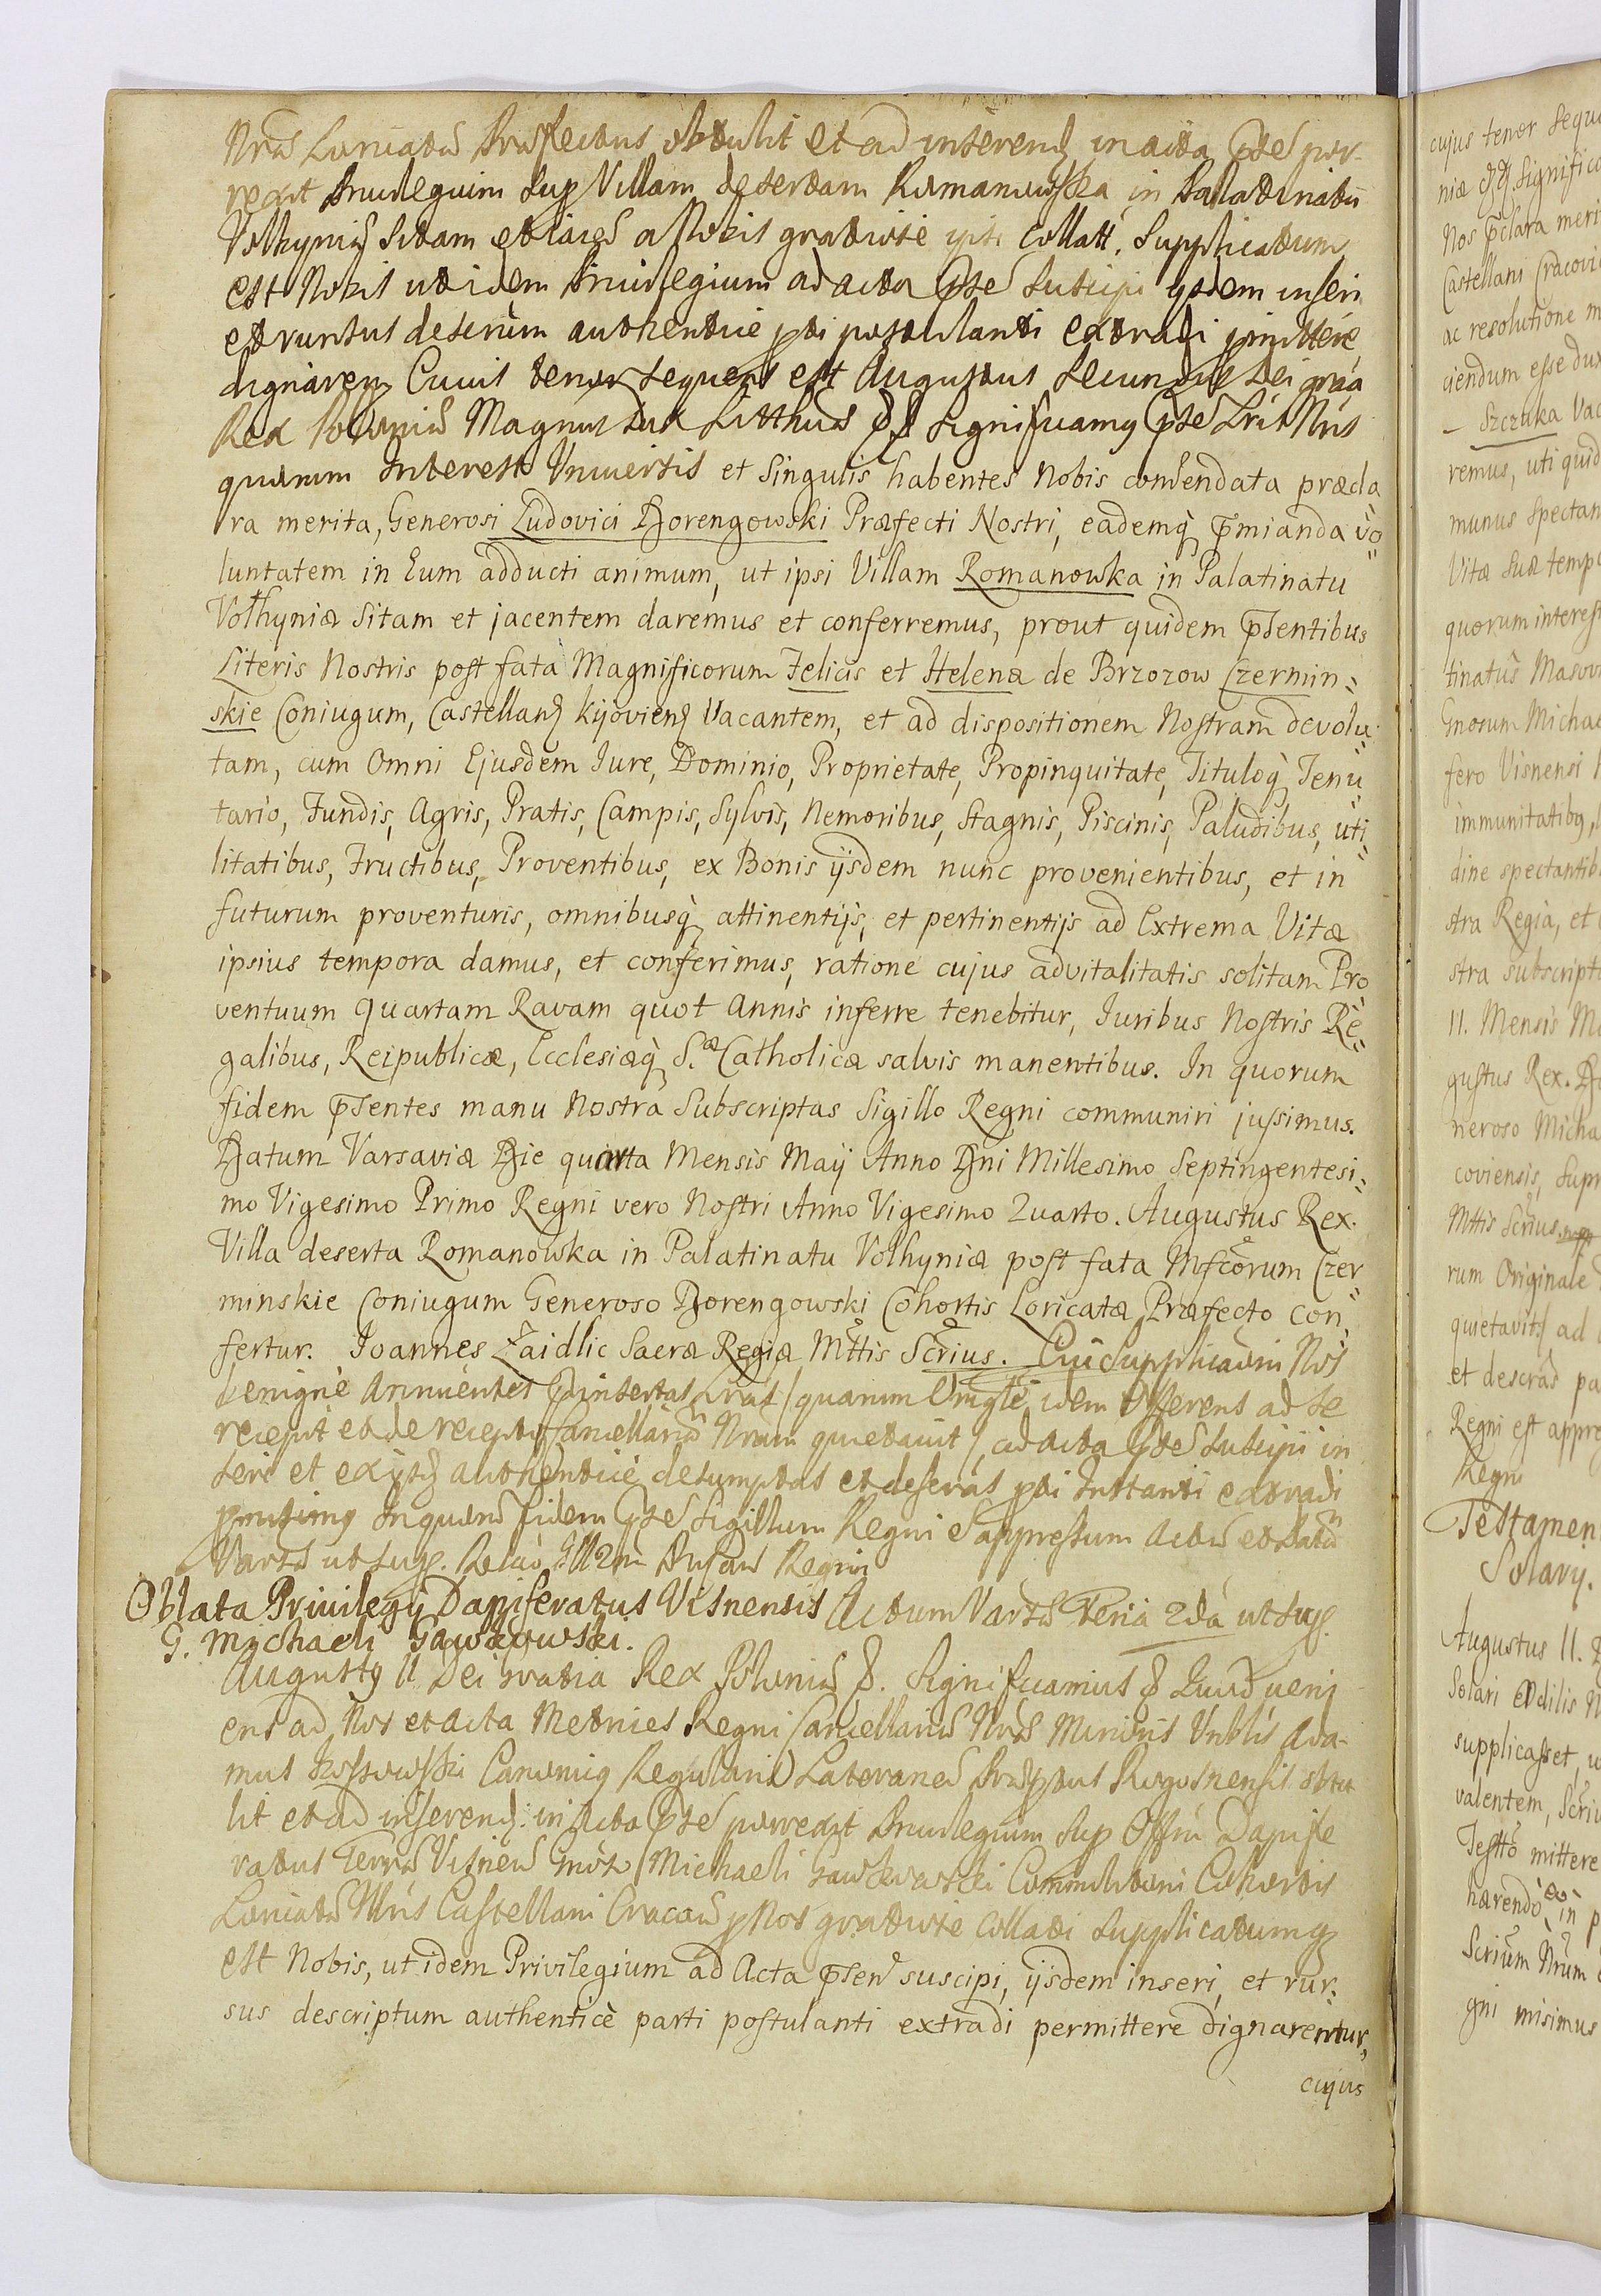 Nrae Loricatae Praefectus obtulit et ad inserend. in acta pntẽ por-
rexit Privilegium sup Villam desertam Romanowska in Palatinatu
Volhyniae sitam et iacen a Nobis gratiose ipsi collatt. Supplicatum
est Nobis ut idem Privilegium ad acta pntẽ suscipi ysdem inseri
et rursus descrium authentice pti postulanti extradi pmittere
dignaremur Cuius tenor sequens est Augustus Secundus Dei gráa
Rex Poloniae Magnus Dux Litthuae Significamus pntẽ Lris Nris
quorum interest Universis et Singulis habentes Nobis comendata præcla
ra merita, Generosi Ludovici Dorengowski Præfecti Nostri, eademq̀ p̃mianda vo=
luntatem in Eum adducti animum, ut ipsi Villam Romanowka in Palatinatu
Volhyniæ Sitam et jacentem daremus et conferremus, prout quidem p̃sentibus
Literis Nostris post fata Magnificorum Felicis et Helenæ de Brzozow Czermin=
skie Coniugum, Castellanꝫ Kijovienꝫ Vacantem, et ad dispositionem Nostram devolu=
tam, cum Omni Ejusdem Iure, Dominio, Proprietate, Propinquitate, Tituloq̀ Tenu=
tario, Fundis, Agris, Pratis, Campis, Sylvis, Nemoribus, Stagnis, Piscinis, Paludibus, uti=
litatibus, Fructibus, Proventibus, ex Bonis ijsdem nunc provenientibus, et in
futurum proventuris, omnibusq̀ attinentijs, et pertinentijs ad Extrema Vitæ
ipsius tempora damus, et conferimus, ratione cujus advitalitatis solitam Pro=
ventuum Quartam Ravam quot Annis inferre tenebitur, Iuribus Nostris Re=
galibus, Reipublicæ, Ecclesiæq̀ S.æ Catholicæ salvis manentibus. In quorum
fidem p̃sentes manu Nostra Subscriptas Sigillo Regni communiri jussimus.
Datum Varsaviæ Die quarta Mensis Maij Anno Dni Millesimo Septingentesi=
mo Vigesimo Primo Regni vero Nostri Anno Vigesimo Quarto. Augustus Rex.
Villa deserta Romanowka in Palatinatu Volhyniæ post fata Mfcorum Czer=
minskie Coniugum Generoso Dorengowski Cohortis Loricatæ Præfecto con=
fertur. Ioannes Zaidlic Sacræ Regiæ Mttis Scrius. Cui supplicaoni Nos
benigne Annuentes pinsertas Lras / quarum Orngle idem Offerens ad se
recepit et de recepto Cancellariam Nram quietavit / ad acta pntẽ suscipi in
seri et ex ijsd authentice desumptas et descrias pti Instanti extradi
pmisimus In quorum fidem pntẽ Sigillum Regni e appressum Actum et Datum
Varsae ut sup. Relaõ Regni
Oblata Privilegij Dapiferatus Visnensis Actum Varsae Feria 2da ut sup.
G. Michaeli Gawkowski.
Augustus II Dei Gratia Rex Poloniae &. Significamus & Quod veni
ens ad Nos et Acta Metrices Regni Cancellariae Nrae Minoris Vnblis Ada-
mus Kossowski Canonicus Regularis Lateranen Praeptus Rogosnensis obtu
lit et ad inserend. in Acta pntẽ porrexit Privilegium sup Offm Dapife
ratus Terrae Visnen Gnoso Michaeli Gawkowski Commilitoni Cohortis
Loricatae Illris Castellani Cracovi p Nos gratiose collati Supplicatumq
est Nobis, ut idem Privilegium ad Acta p̃sen suscipi, ijsdem inseri, et rur=
sus descriptum authenticè parti postulanti extradi permittere dignarentur,
cujus
cujus tenor sequi
niæ Significa
Nos p̃clara meri
Castellani Cracovi
ac resolutione m
ciendum esse dux
Szczuka Vac
remus, uti quid
munus Spectan
Vitæ Suæ temp
quorum interest
tinatus Masov
Gnosum Michae
fero Visnensi
immunitatibq,
dine spectantib
stra Regia, et
stra subscript
11. Mensis M
gustus Rex. D
neroso Micha
coviensis, Supr
Mttis Scrius
rum Originale
quietavit/ ad
et descras pa
Regni est appre
Regni
Testamen
Solary.
Augustus II. D
Solari Ædilis N
supplicasset, u
valentem, Scri
Testto mittere
hærendo in p
Scrium Nrum
gni misimus